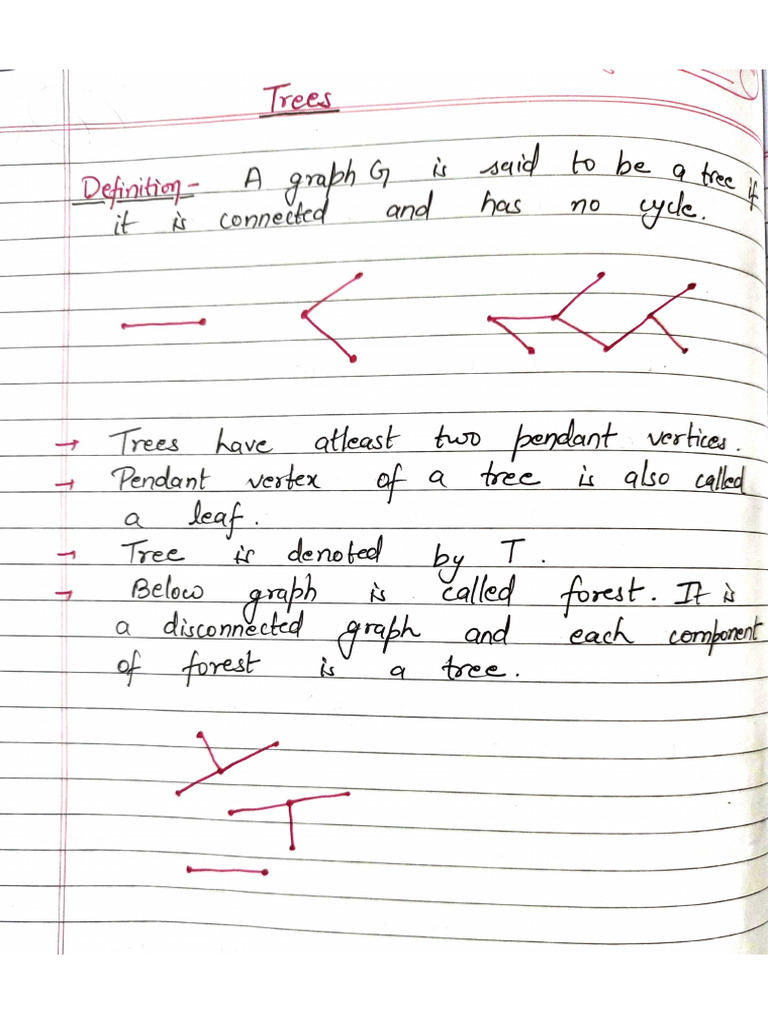 Trees
Definition- A graph G is said to be a tree if
it is connected and has no cycle.
→ Trees have atleast two pendant vertices.
→ Pendant vertex of a tree is also called
a leaf.
→ Tree is denoted by T.
→ Below graph is called forest. It is
a disconnected graph and each component
of forest is a tree.